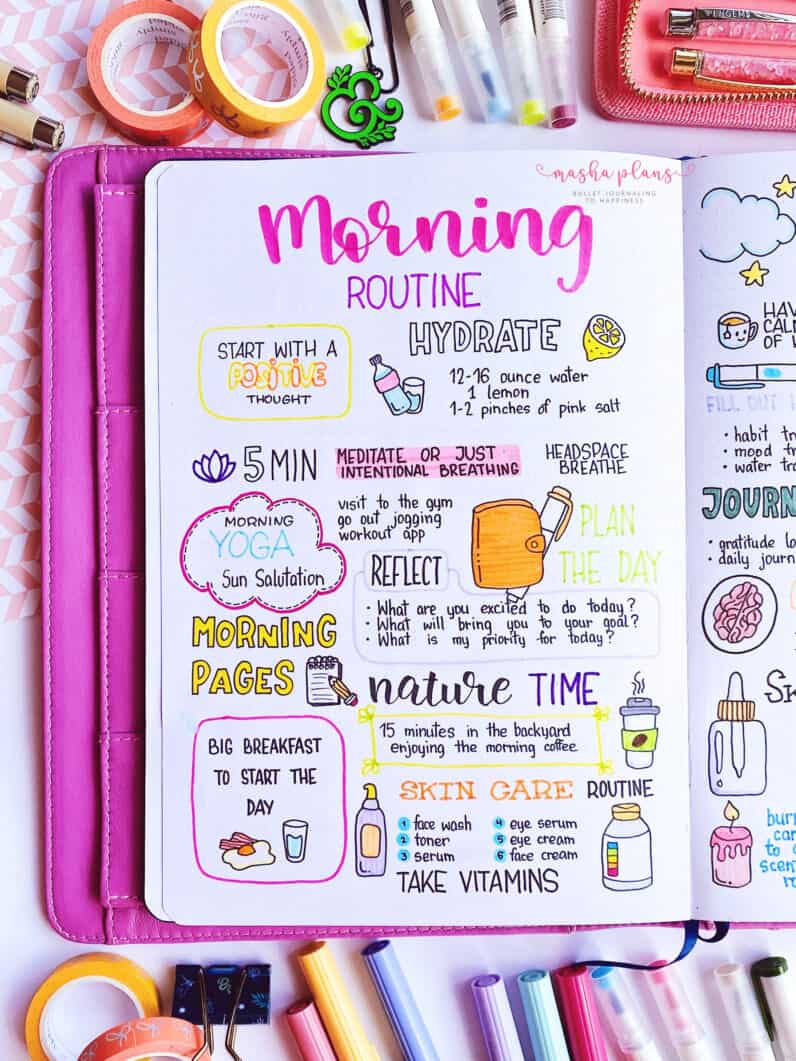 PENGEMS
masha plans
BULLET JOURNALING
TO HAPPINESS
Morning
ROUTINE
START WITH A
POSITIVE
THOUGHT
HYDRATE
12-16 ounce water
1 lemon
1-2 pinches of pink salt
5 MIN
MEDITATE OR JUST
INTENTIONAL BREATHING
HEADSPACE
BREATHE
MORNING
YOGA
Sun Salutation
visit to the gym
go out jogging
workout app
PLAN
THE DAY
REFLECT
• What are you excited to do today?
• What will bring you to your goal?
• What is my priority for today?
MORNING
PAGES
nature TIME
15 minutes in the backyard
enjoying the morning coffee
BIG BREAKFAST
TO START THE
DAY
SKIN CARE ROUTINE
1 face wash
2 toner
3 serum
4 eye serum
5 eye cream
6 face cream
TAKE VITAMINS
HAV
CALM
OF
FILL OUT
• habit tr
• mood tr
• water tra
JOURN
• gratitude lo
• daily journ
SK
burn
can
to
scen